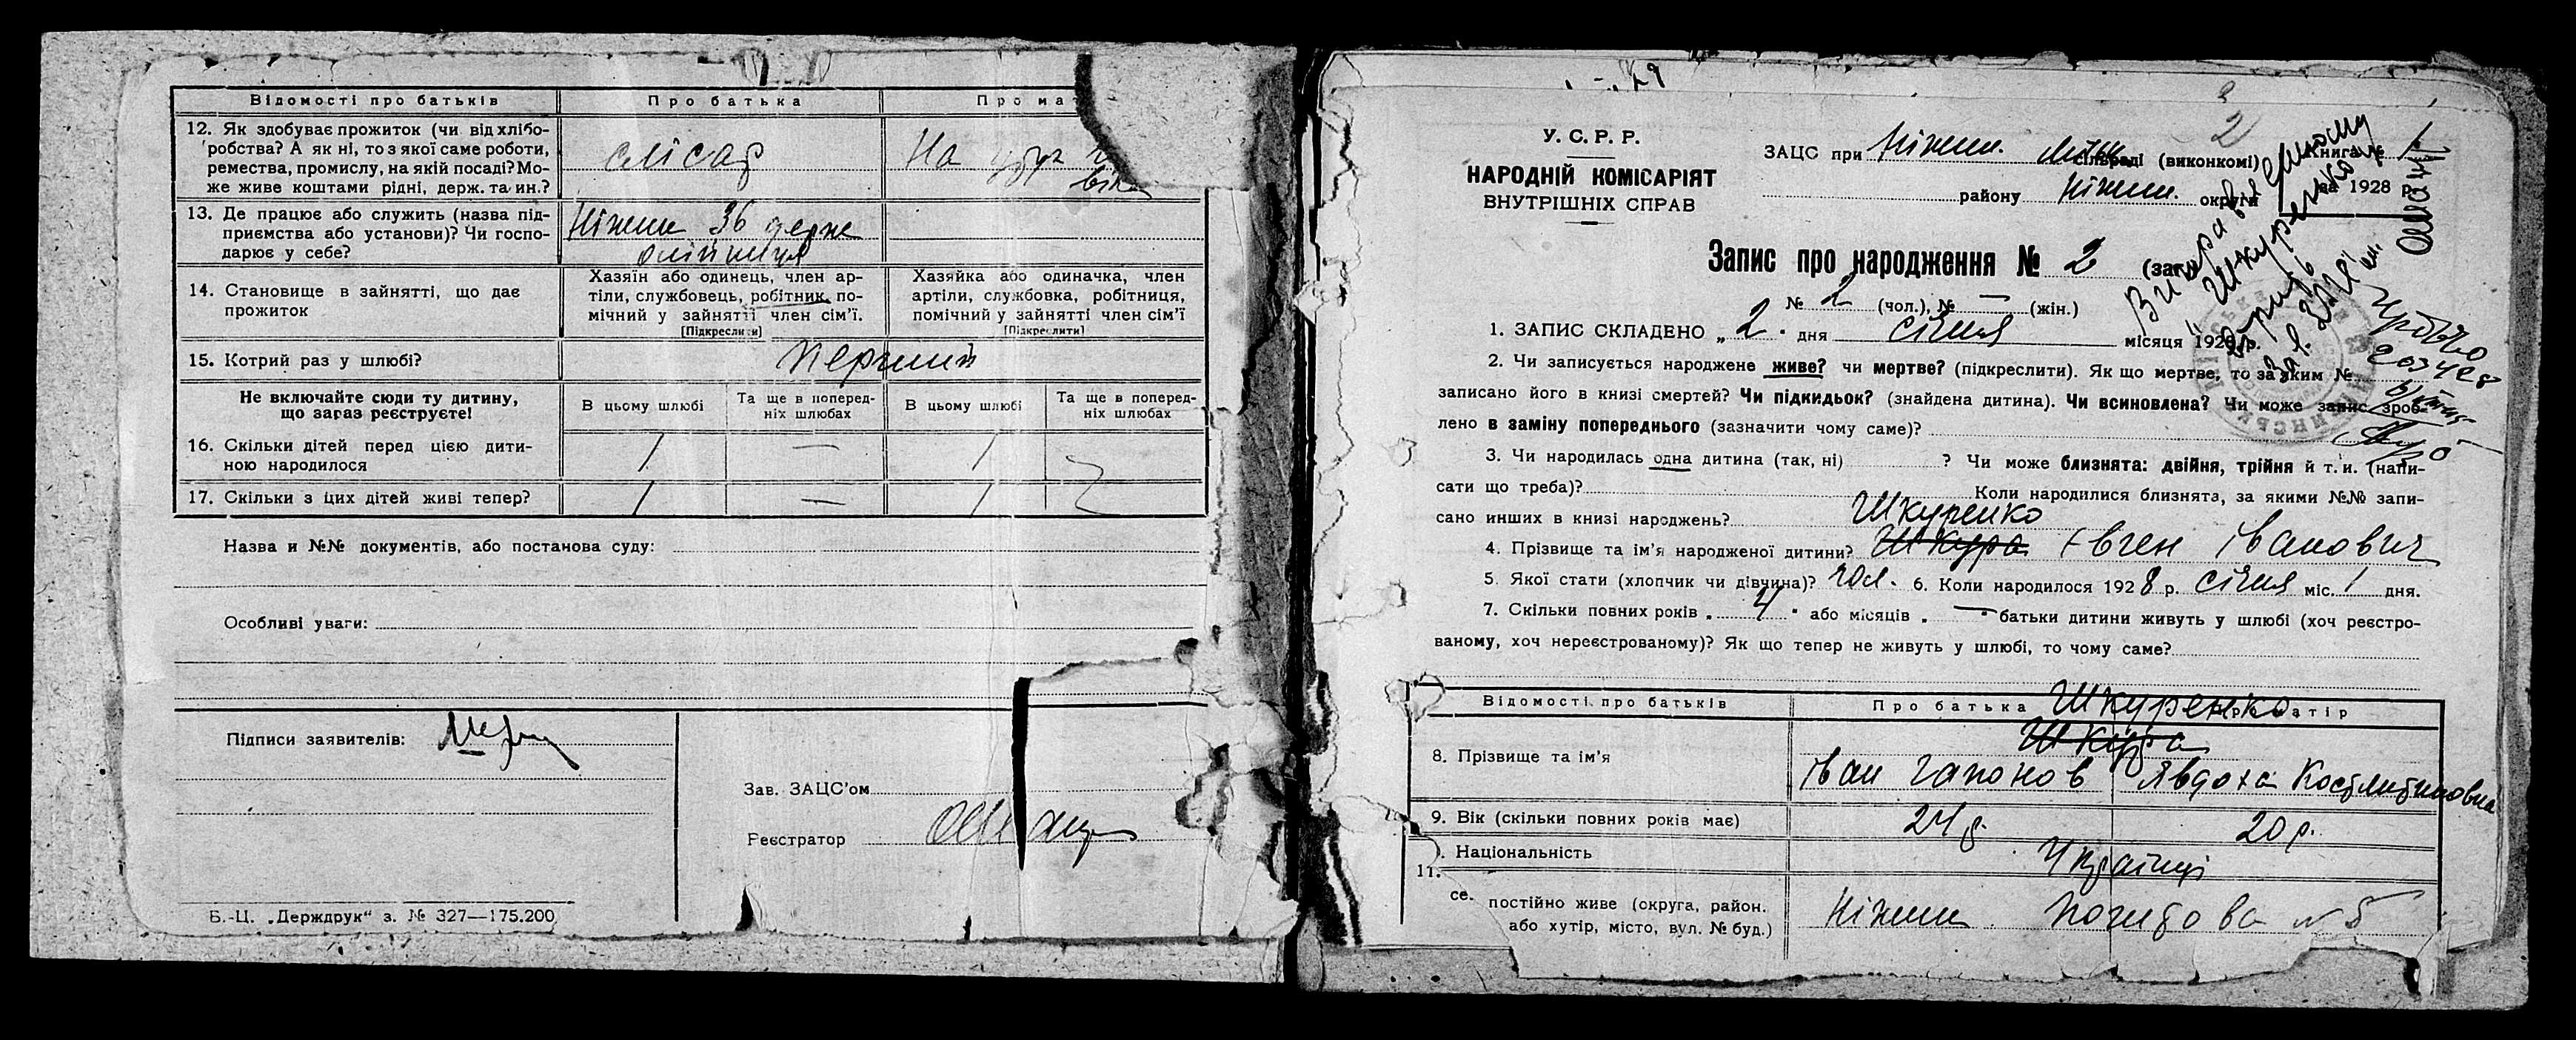 Відомості про батьків
Про батька
Про мат
12. Як здобуває прожиток (чи від хлібо-
робства? А як ні, то з якої саме роботи,
ремества, промислу, на якій посаді? Мо-
же живе коштами рідні, держ. та ин.?
слісар
На утр
13. Де працює або служить (назва під-
приємства або установи)? Чи госпо-
дарює у себе?
Ніжин 36 держ
олійниця
14. Становище в зайнятті, що дає
прожиток
Хазяїн або одинець, член ар-
тіли, службовець, робітник, по-
мічний у зайнятті член сім'ї.
[Підкреслити]
Хазяйка або одиначка, член
артіли, службовка, робітниця,
помічний у зайнятті член сім'ї
[Підкреслити]
15. Котрий раз у шлюбі?
Перший
Не включайте сюди ту дитину,
що зараз реєструєте!
В цьому шлюбі
Та ще в поперед-
ніх шлюбах
В цьому шлюбі
Та ще в поперед-
ніх шлюбах
16. Скільки дітей перед цією дити-
ною народилося
1 — 1
17. Скільки з цих дітей живі тепер?
1 — 1
Назва и №№ документів, або постанова суду:
Особливі уваги:
Підписи заявителів:
Зав. ЗАЦС'ом
Реєстратор
Б.-Ц. „Держдрук“ з. № 327—175.200
У. С. Р. Р.
НАРОДНІЙ КОМІСАРІЯТ
ВНУТРІШНІХ СПРАВ
2
ЗАЦС при Ніжин. сільраді (виконкомі)
району Ніжин. округи
Книга № 1
за 1928 р.
Запис про народження № 2 (заг
№ 2 (чол.), № — (жін.)
1. ЗАПИС СКЛАДЕНО „ 2 " дня січня місяця 1928 р.
2. Чи записується народжене живе? чи мертве? (підкреслити). Як що мертве, то за яким №
записано його в книзі смертей? Чи підкидьок? (знайдена дитина). Чи всиновлена? Чи може запис зроб-
лено в заміну попереднього (зазначити чому саме)?
3. Чи народилась одна дитина (так, ні) ? Чи може близнята: двійня, трійня й т. и. (напи-
сати що треба)? Коли народилися близнята, за якими №№ запи-
сано инших в книзі народжень?
Шкуренко
4. Прізвище та ім'я народженої дитини? Шкура Євген Іванович
5. Якої стати (хлопчик чи дівчина)? чол. 6. Коли народилося 1928 р. січня міс. 1 дня.
7. Скільки повних років „ 4 " або місяців „ — " батьки дитини живуть у шлюбі (хоч реєстро-
ваному, хоч нереєстрованому)? Як що тепер не живуть у шлюбі, то чому саме?
Відомості про батьків
Про батька
Шкуренко
8. Прізвище та ім'я
Шкура
Іван Гапонов Явдоха Костянтиновна
9. Вік (скільки повних років має)
24 р. 20 р.
. Національність
Українці
11.
се. постійно живе (округа, район.
або хутір, місто, вул. № буд.)
Ніжин
№ 5
Виправ
Шкуренко